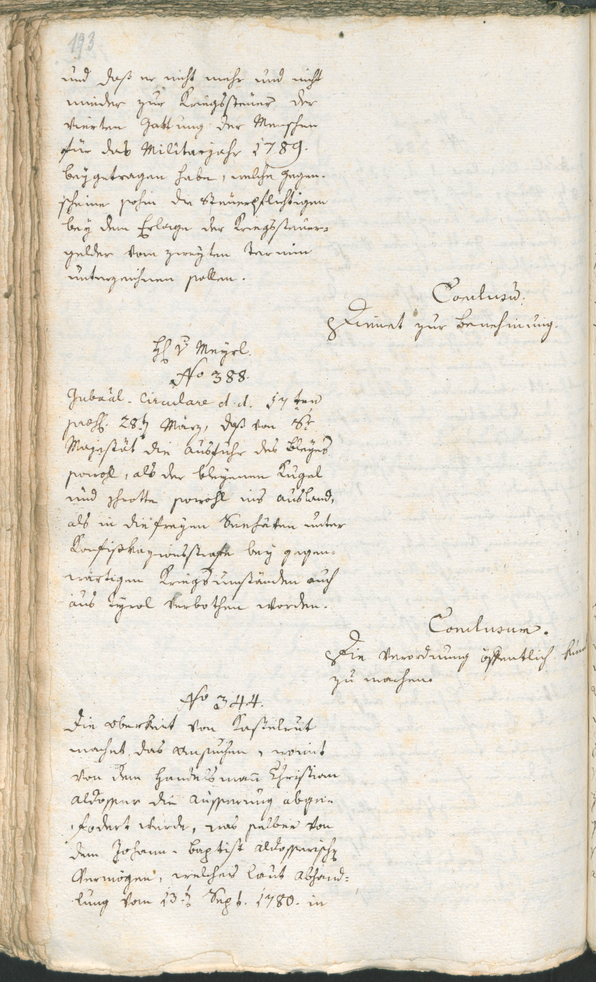 193
und daß er nicht mehr und nicht
minder zur Kriegssteuer der
vierten Gattung der Menschen
für das Militarjahr 1789.
beygetragen habe, welche Gegen-
scheine sohin die Steuerpflichtigen
bey dem Erlage der Kriegssteuer-
gelder vom zweyten Termin
unterzeichnen sollen.
Conclusū.
Dienet zur Benehmung.
v Meyrl.
No 388.
Gubaãl-Circulare d. d. 17ten
praes. 28t März, daß von Sr
Majestät die Ausfuhr des Bleyes
sowohl, als der bleyenen Kugel
und Schrotte sowohl ins Ausland,
als in die freyen Seehäfen unter
Konfiskazionsstrafe bey gegen-
wärtigen Kriegsumständen auch
aus Tyrol verbothen worden.
Conclusum.
Die Verordnung öffentlich kund
zu machen.
No 344.
Die Oberkeit von Kastelrut
machet das Ansuchen, womit
von dem Handelsmañ Christian
die Äusserung abge-
fodert würde, was selber von
dem Johann-Baptist
Vermögen, welches laut Abhand-
lung vom 13t Sept. 1780. in